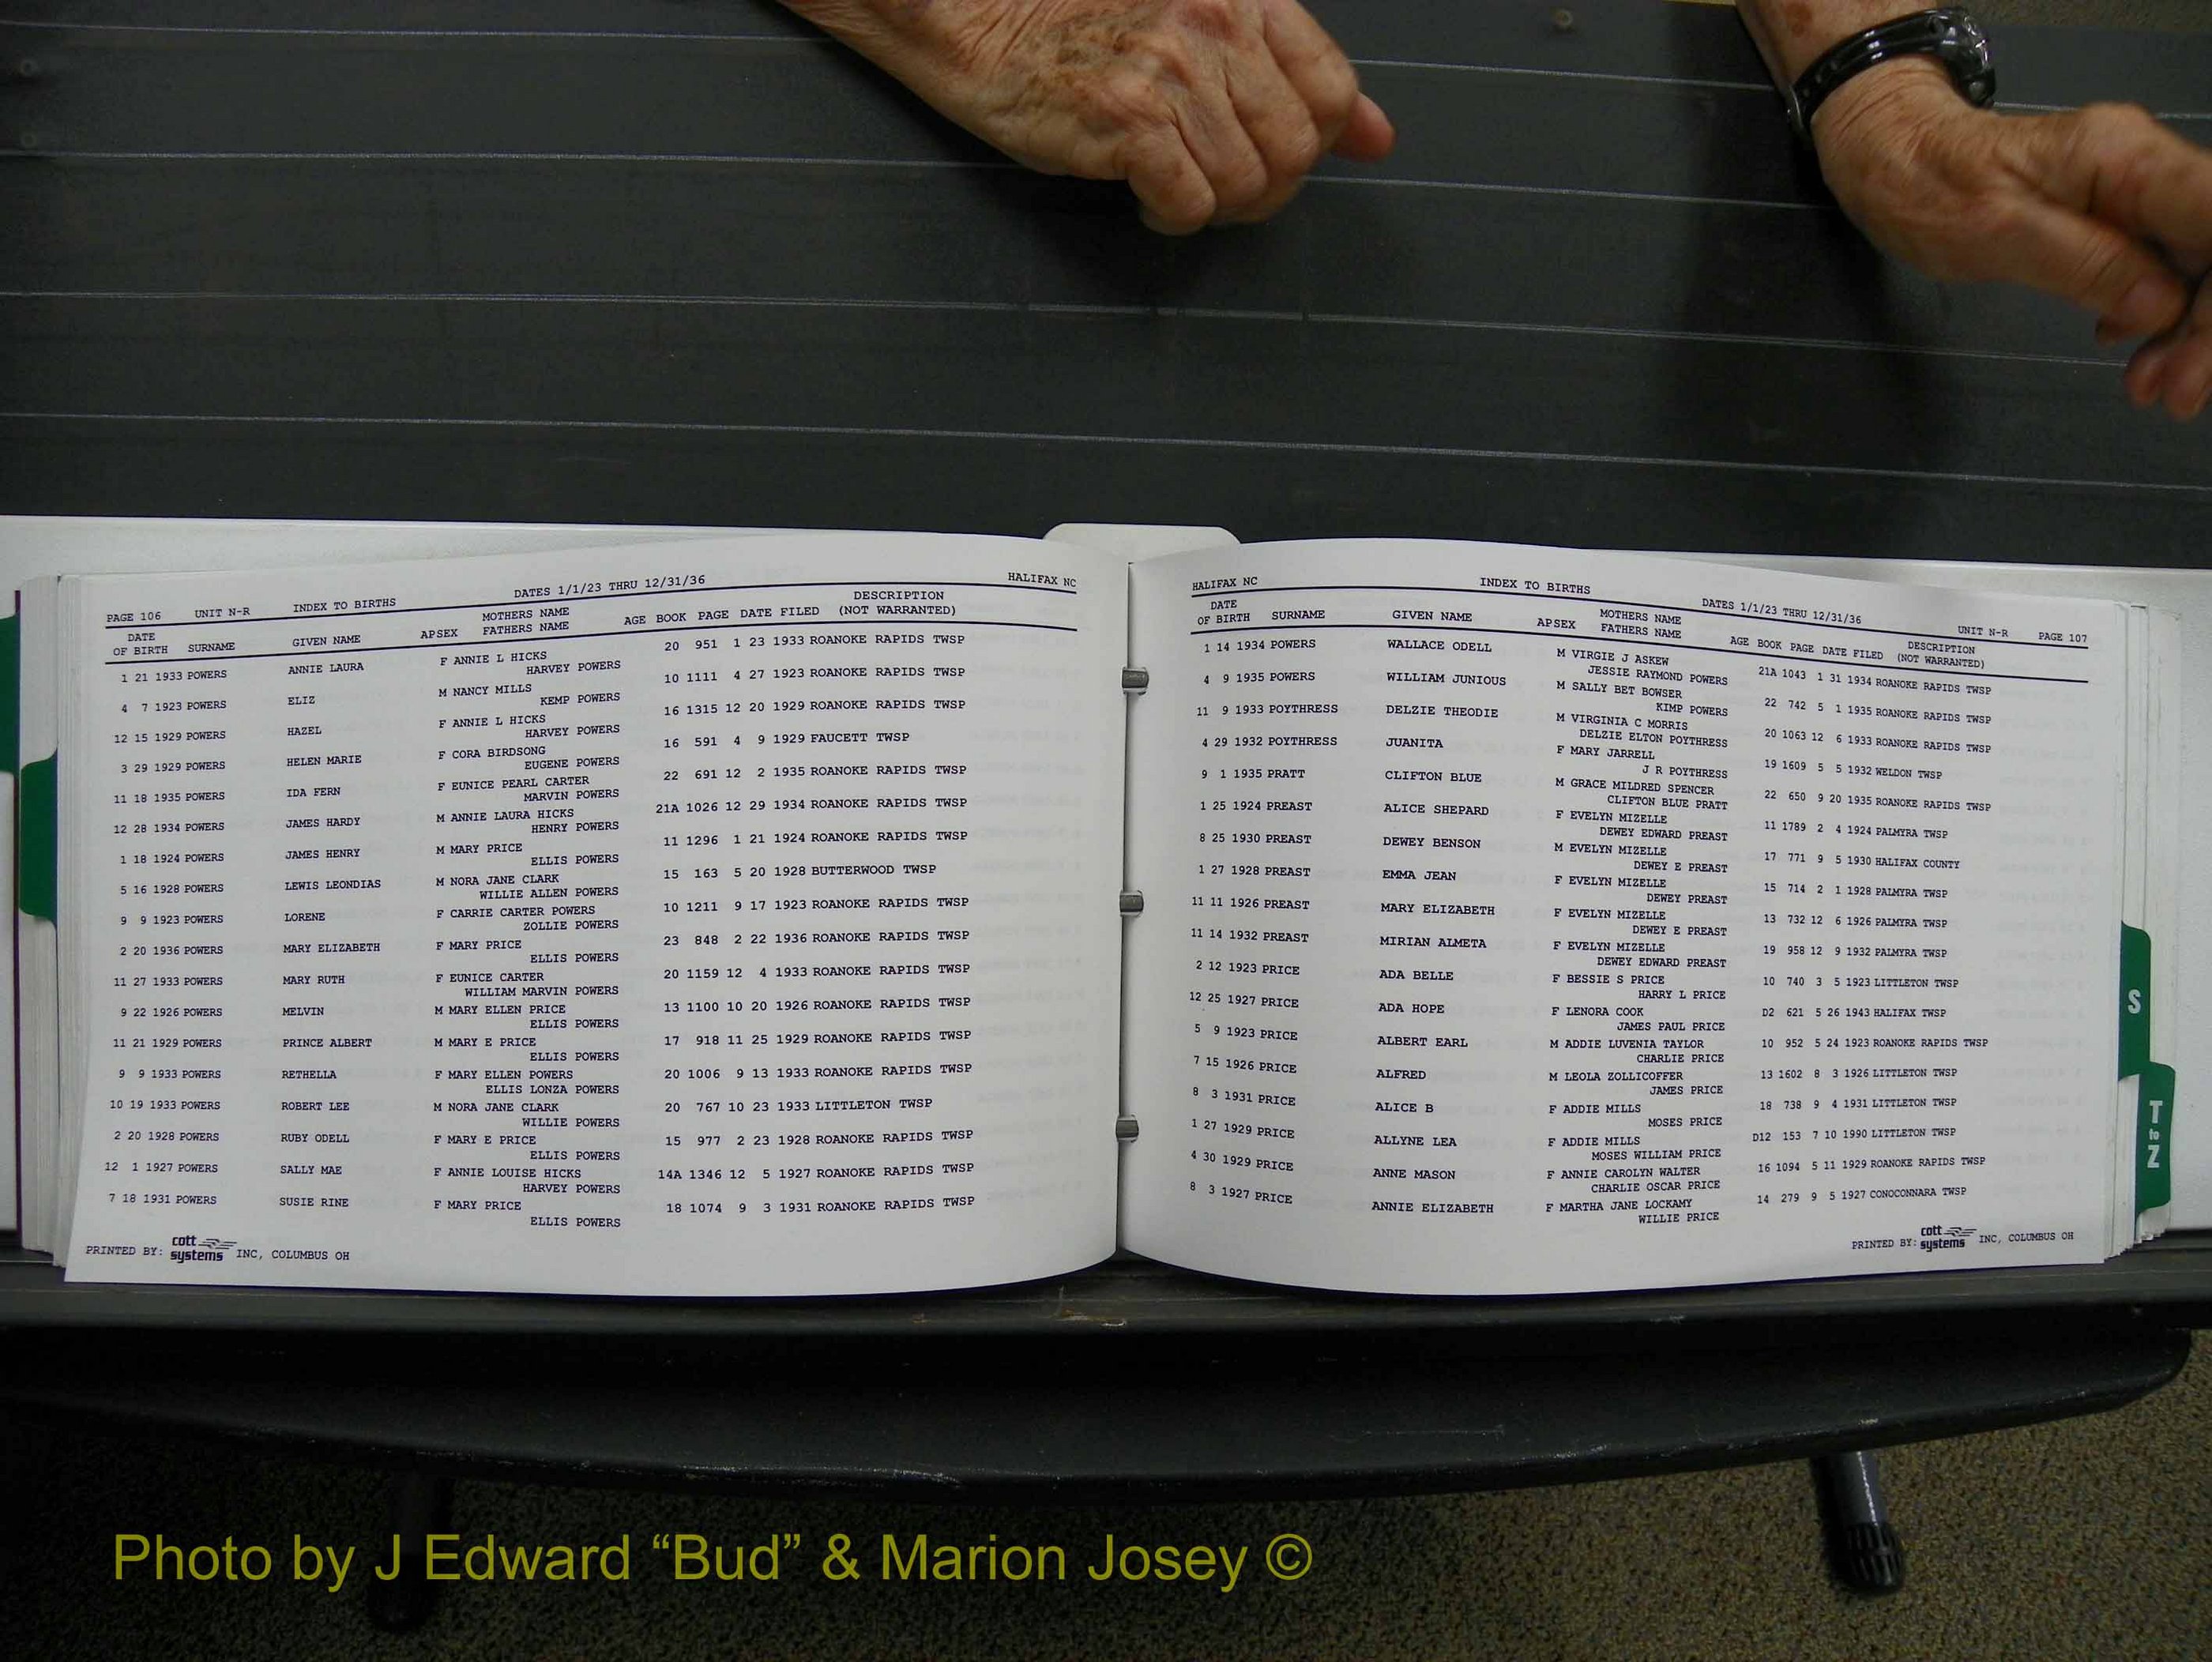 PAGE 106 UNIT N-R INDEX TO BIRTHS DATES 1/1/23 THRU 12/31/36 HALIFAX NC
DATE OF BIRTH SURNAME GIVEN NAME APSEX MOTHERS NAME FATHERS NAME AGE BOOK PAGE DATE FILED DESCRIPTION (NOT WARRANTED)
1 21 1933 POWERS ANNIE LAURA F ANNIE L HICKS 20 951 1 23 1933 ROANOKE RAPIDS TWSP
HARVEY POWERS
4 7 1923 POWERS ELIZ M NANCY MILLS 10 1111 4 27 1923 ROANOKE RAPIDS TWSP
KEMP POWERS
12 15 1929 POWERS HAZEL F ANNIE L HICKS 16 1315 12 20 1929 ROANOKE RAPIDS TWSP
HARVEY POWERS
3 29 1929 POWERS HELEN MARIE F CORA BIRDSONG 16 591 4 9 1929 FAUCETT TWSP
EUGENE POWERS
11 18 1935 POWERS IDA FERN F EUNICE PEARL CARTER 22 691 12 2 1935 ROANOKE RAPIDS TWSP
MARVIN POWERS
12 28 1934 POWERS JAMES HARDY M ANNIE LAURA HICKS 21A 1026 12 29 1934 ROANOKE RAPIDS TWSP
HENRY POWERS
1 18 1924 POWERS JAMES HENRY M MARY PRICE 11 1296 1 21 1924 ROANOKE RAPIDS TWSP
ELLIS POWERS
5 16 1928 POWERS LEWIS LEONDIAS M NORA JANE CLARK 15 163 5 20 1928 BUTTERWOOD TWSP
WILLIE ALLEN POWERS
9 9 1923 POWERS LORENE F CARRIE CARTER POWERS 10 1211 9 17 1923 ROANOKE RAPIDS TWSP
ZOLLIE POWERS
2 20 1936 POWERS MARY ELIZABETH F MARY PRICE 23 848 2 22 1936 ROANOKE RAPIDS TWSP
ELLIS POWERS
11 27 1933 POWERS MARY RUTH F EUNICE CARTER 20 1159 12 4 1933 ROANOKE RAPIDS TWSP
WILLIAM MARVIN POWERS
9 22 1926 POWERS MELVIN M MARY ELLEN PRICE 13 1100 10 20 1926 ROANOKE RAPIDS TWSP
ELLIS POWERS
11 21 1929 POWERS PRINCE ALBERT M MARY E PRICE 17 918 11 25 1929 ROANOKE RAPIDS TWSP
ELLIS POWERS
9 9 1933 POWERS RETHELLA F MARY ELLEN POWERS 20 1006 9 13 1933 ROANOKE RAPIDS TWSP
ELLIS LONZA POWERS
10 19 1933 POWERS ROBERT LEE M NORA JANE CLARK 20 767 10 23 1933 LITTLETON TWSP
WILLIE POWERS
2 20 1928 POWERS RUBY ODELL F MARY E PRICE 15 977 2 23 1928 ROANOKE RAPIDS TWSP
ELLIS POWERS
12 1 1927 POWERS SALLY MAE F ANNIE LOUISE HICKS 14A 1346 12 5 1927 ROANOKE RAPIDS TWSP
HARVEY POWERS
7 18 1931 POWERS SUSIE RINE F MARY PRICE 18 1074 9 3 1931 ROANOKE RAPIDS TWSP
ELLIS POWERS
PRINTED BY: cott systems INC, COLUMBUS OH
HALIFAX NC INDEX TO BIRTHS DATES 1/1/23 THRU 12/31/36 UNIT N-R PAGE 107
DATE OF BIRTH SURNAME GIVEN NAME APSEX MOTHERS NAME FATHERS NAME AGE BOOK PAGE DATE FILED DESCRIPTION (NOT WARRANTED)
1 14 1934 POWERS WALLACE ODELL M VIRGIE J ASKEW 21A 1043 1 31 1934 ROANOKE RAPIDS TWSP
JESSIE RAYMOND POWERS
4 9 1935 POWERS WILLIAM JUNIOUS M SALLY BET BOWSER 22 742 5 1 1935 ROANOKE RAPIDS TWSP
KIMP POWERS
11 9 1933 POYTHRESS DELZIE THEODIE M VIRGINIA C MORRIS 20 1063 12 6 1933 ROANOKE RAPIDS TWSP
DELZIE ELTON POYTHRESS
4 29 1932 POYTHRESS JUANITA F MARY JARRELL 19 1609 5 5 1932 WELDON TWSP
J R POYTHRESS
9 1 1935 PRATT CLIFTON BLUE M GRACE MILDRED SPENCER 22 650 9 20 1935 ROANOKE RAPIDS TWSP
CLIFTON BLUE PRATT
1 25 1924 PREAST ALICE SHEPARD F EVELYN MIZELLE 11 1789 2 4 1924 PALMYRA TWSP
DEWEY EDWARD PREAST
8 25 1930 PREAST DEWEY BENSON M EVELYN MIZELLE 17 771 9 5 1930 HALIFAX COUNTY
DEWEY E PREAST
1 27 1928 PREAST EMMA JEAN F EVELYN MIZELLE 15 714 2 1 1928 PALMYRA TWSP
DEWEY PREAST
11 11 1926 PREAST MARY ELIZABETH F EVELYN MIZELLE 13 732 12 6 1926 PALMYRA TWSP
DEWEY E PREAST
11 14 1932 PREAST MIRIAN ALMETA F EVELYN MIZELLE 19 958 12 9 1932 PALMYRA TWSP
DEWEY EDWARD PREAST
2 12 1923 PRICE ADA BELLE F BESSIE S PRICE 10 740 3 5 1923 LITTLETON TWSP
HARRY L PRICE
12 25 1927 PRICE ADA HOPE F LENORA COOK D2 621 5 26 1943 HALIFAX TWSP
JAMES PAUL PRICE
5 9 1923 PRICE ALBERT EARL M ADDIE LUVENIA TAYLOR 10 952 5 24 1923 ROANOKE RAPIDS TWSP
CHARLIE PRICE
7 15 1926 PRICE ALFRED M LEOLA ZOLLICOFFER 13 1602 8 3 1926 LITTLETON TWSP
JAMES PRICE
8 3 1931 PRICE ALICE B F ADDIE MILLS 18 738 9 4 1931 LITTLETON TWSP
MOSES PRICE
1 27 1929 PRICE ALLYNE LEA F ADDIE MILLS D12 153 7 10 1990 LITTLETON TWSP
MOSES WILLIAM PRICE
4 30 1929 PRICE ANNE MASON F ANNIE CAROLYN WALTER 16 1094 5 11 1929 ROANOKE RAPIDS TWSP
CHARLIE OSCAR PRICE
8 3 1927 PRICE ANNIE ELIZABETH F MARTHA JANE LOCKAMY 14 279 9 5 1927 CONOCONNARA TWSP
WILLIE PRICE
PRINTED BY: cott systems INC, COLUMBUS OH
S
T to Z
Photo by J Edward “Bud” & Marion Josey ©